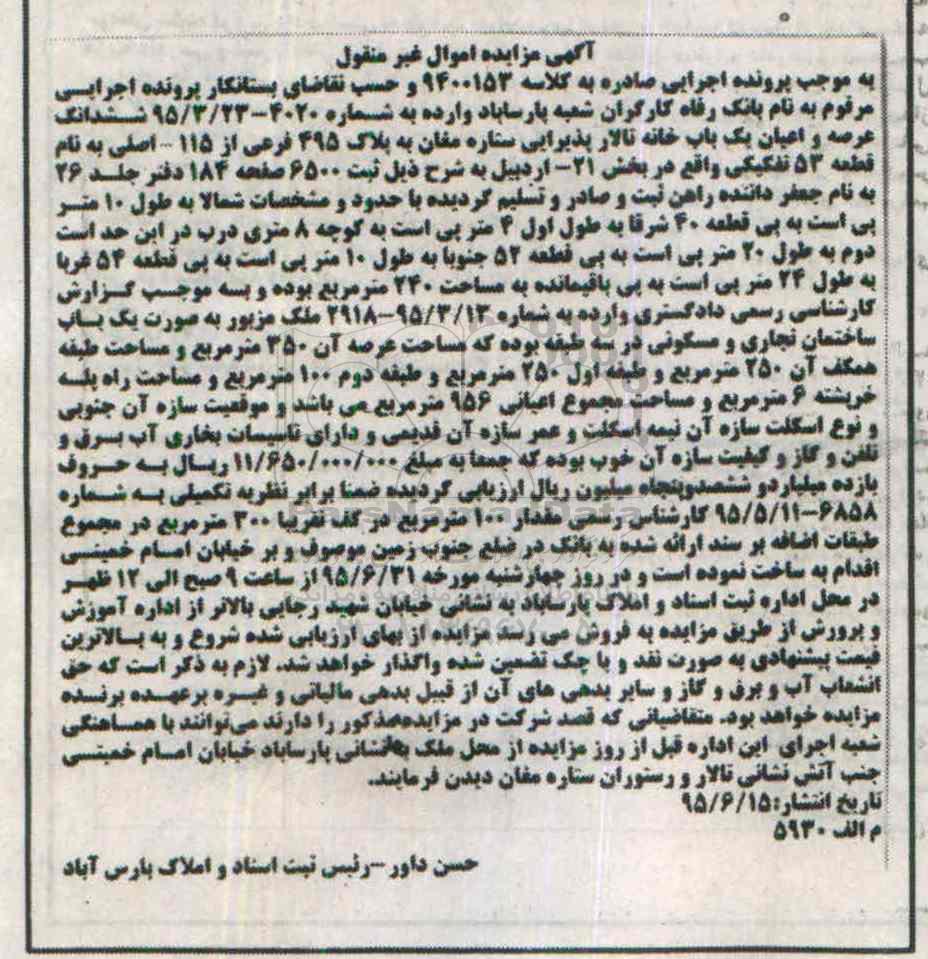 آگهی مزایده اموال غیر منقول
به موجب پرونده اجرایی صادره به کلاسه ۹۴۰۰۱۵۳ و حسب تقاضای بستانکار پرونده اجرایی
مرقوم به نام بانک رفاه کارگران شعبه پارساباد وارده به شماره ۴۰۲۰-۹۵/۳/۲۳ ششدانگ
عرصه و اعیان یک باب خانه تالار پذیرایی ستاره مغان به پلاک ۴۹۵ فرعی از ۱۱۵ - اصلی به نام
قطعه ۵۳ تفکیکی واقع در بخش ۲۱- اردبیل به شرح ذیل ثبت ۶۵۰۰ صفحه ۱۸۴ دفتر جلد ۲۶
به نام جعفر داننده راهن ثبت و صادر و تسلیم گردیده با حدود و مشخصات شمالا به طول ۱۰ متر
پی است به پی قطعه ۴۰ شرقا به طول اول ۴ متر پی است به کوچه ۸ متری درب در این حد است
دوم به طول ۲۰ متر پی است به پی قطعه ۵۲ جنوبا به طول ۱۰ متر پی است به پی قطعه ۵۴ غربا
به طول ۲۴ متر پی است به پی باقیمانده به مساحت ۲۴۰ مترمربع بوده و به موجب گزارش
کارشناسی رسمی دادگستری وارده به شماره ۲۹۱۸-۹۵/۳/۱۳ ملک مزبور به صورت یک باب
ساختمان تجاری و مسکونی در سه طبقه بوده که مساحت عرصه آن ۳۵۰ مترمربع و مساحت طبقه
همکف آن ۲۵۰ مترمربع و طبقه اول ۲۵۰ مترمربع و طبقه دوم ۱۰۰ مترمربع و مساحت راه پله
خرپشته ۶ مترمربع و مساحت مجموع اعیانی ۹۵۶ مترمربع می باشد و موقعیت سازه آن جنوبی
و نوع اسکلت سازه آن نیمه اسکلت و عمر سازه آن قدیمی و دارای تاسیسات بخاری آب برق و
تلفن و گاز و کیفیت سازه آن خوب بوده که جمعا به مبلغ ۱۱/۶۵۰/۰۰۰/۰۰۰ ریال به حروف
یازده میلیاردو ششصدوپنجاه میلیون ریال ارزیابی گردیده ضمنا برابر نظریه تکمیلی به شماره
۶۸۵۸-۹۵/۵/۱۱ کارشناس رسمی مقدار ۱۰۰ مترمربع در کف تقریبا ۳۰۰ مترمربع در مجموع
طبقات اضافه بر سند ارائه شده به بانک در ضلع جنوب زمین موصوف و بر خیابان امام خمینی
اقدام به ساخت نموده است و در روز چهارشنبه مورخه ۹۵/۶/۳۱ از ساعت ۹ صبح الی ۱۲ ظهر
در محل اداره ثبت اسناد و املاک پارساباد به نشانی خیابان شهید رجایی بالاتر از اداره آموزش
و پرورش از طریق مزایده به فروش می رسد مزایده از بهای ارزیابی شده شروع و به بالاترین
قیمت پیشنهادی به صورت نقد و با چک تضمین شده واگذار خواهد شد. لازم به ذکر است که حق
انشعاب آب و برق و گاز و سایر بدهی های آن از قبیل بدهی مالیاتی و غیره برعهده برنده
مزایده خواهد بود. متقاضیانی که قصد شرکت در مزایده مذکور را دارند می‌توانند با هماهنگی
شعبه اجرای این اداره قبل از روز مزایده از محل ملک به نشانی پارساباد خیابان امام خمینی
جنب آتش نشانی تالار و رستوران ستاره مغان دیدن فرمایند.
تاریخ انتشار: ۹۵/۶/۱۵
م الف ۵۹۳۰
حسن داور -رئیس ثبت اسناد و املاک پارس آباد
ParsNamadData